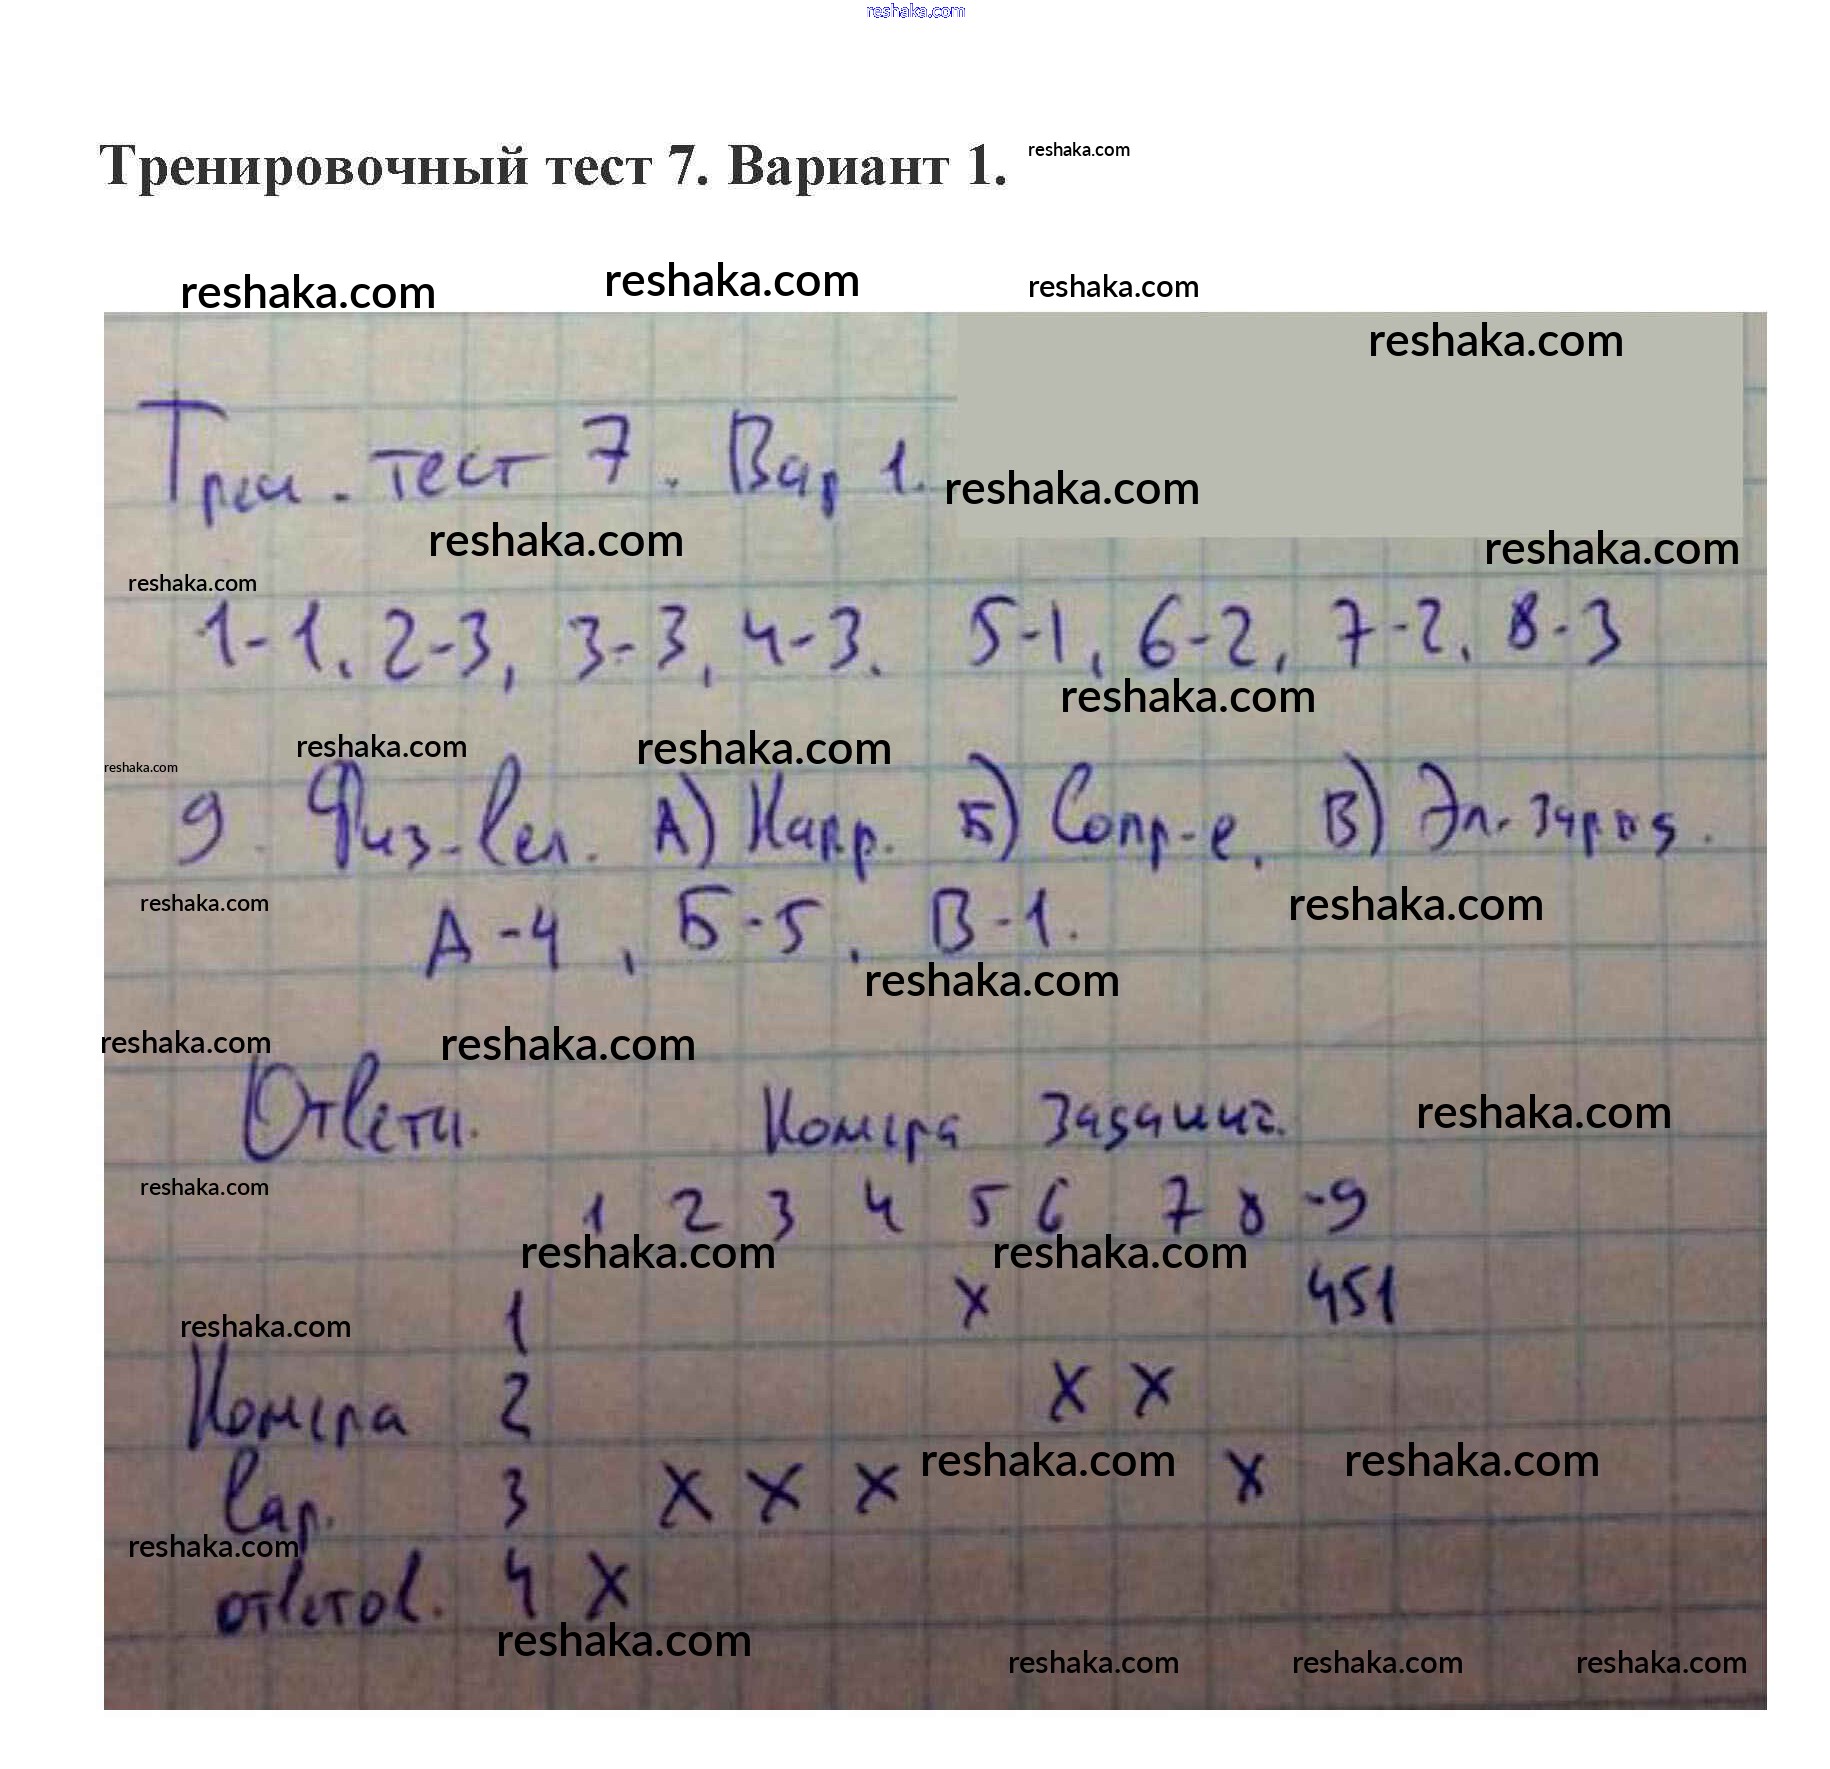 reshaka.com
Тренировочный тест 7. Вариант 1. reshaka.com
reshaka.com reshaka.com reshaka.com
reshaka.com
Трен. тест 7. Вар 1. reshaka.com
reshaka.com reshaka.com
reshaka.com
1-1, 2-3, 3-3, 4-3. 5-1, 6-2, 7-2, 8-3
reshaka.com
reshaka.com reshaka.com
reshaka.com
9. Физ-вел. А) Напр. Б) Сопр-е. В) Эл. заряд.
reshaka.com reshaka.com
А-4, Б-5, В-1.
reshaka.com
reshaka.com reshaka.com
Ответы. Номера заданий. reshaka.com
reshaka.com
1 2 3 4 5 6 7 8 -9
reshaka.com reshaka.com
1 х 451
reshaka.com
Номера 2 х х
reshaka.com reshaka.com
вар. 3 х х х х
reshaka.com
ответов. 4 х
reshaka.com
reshaka.com reshaka.com reshaka.com